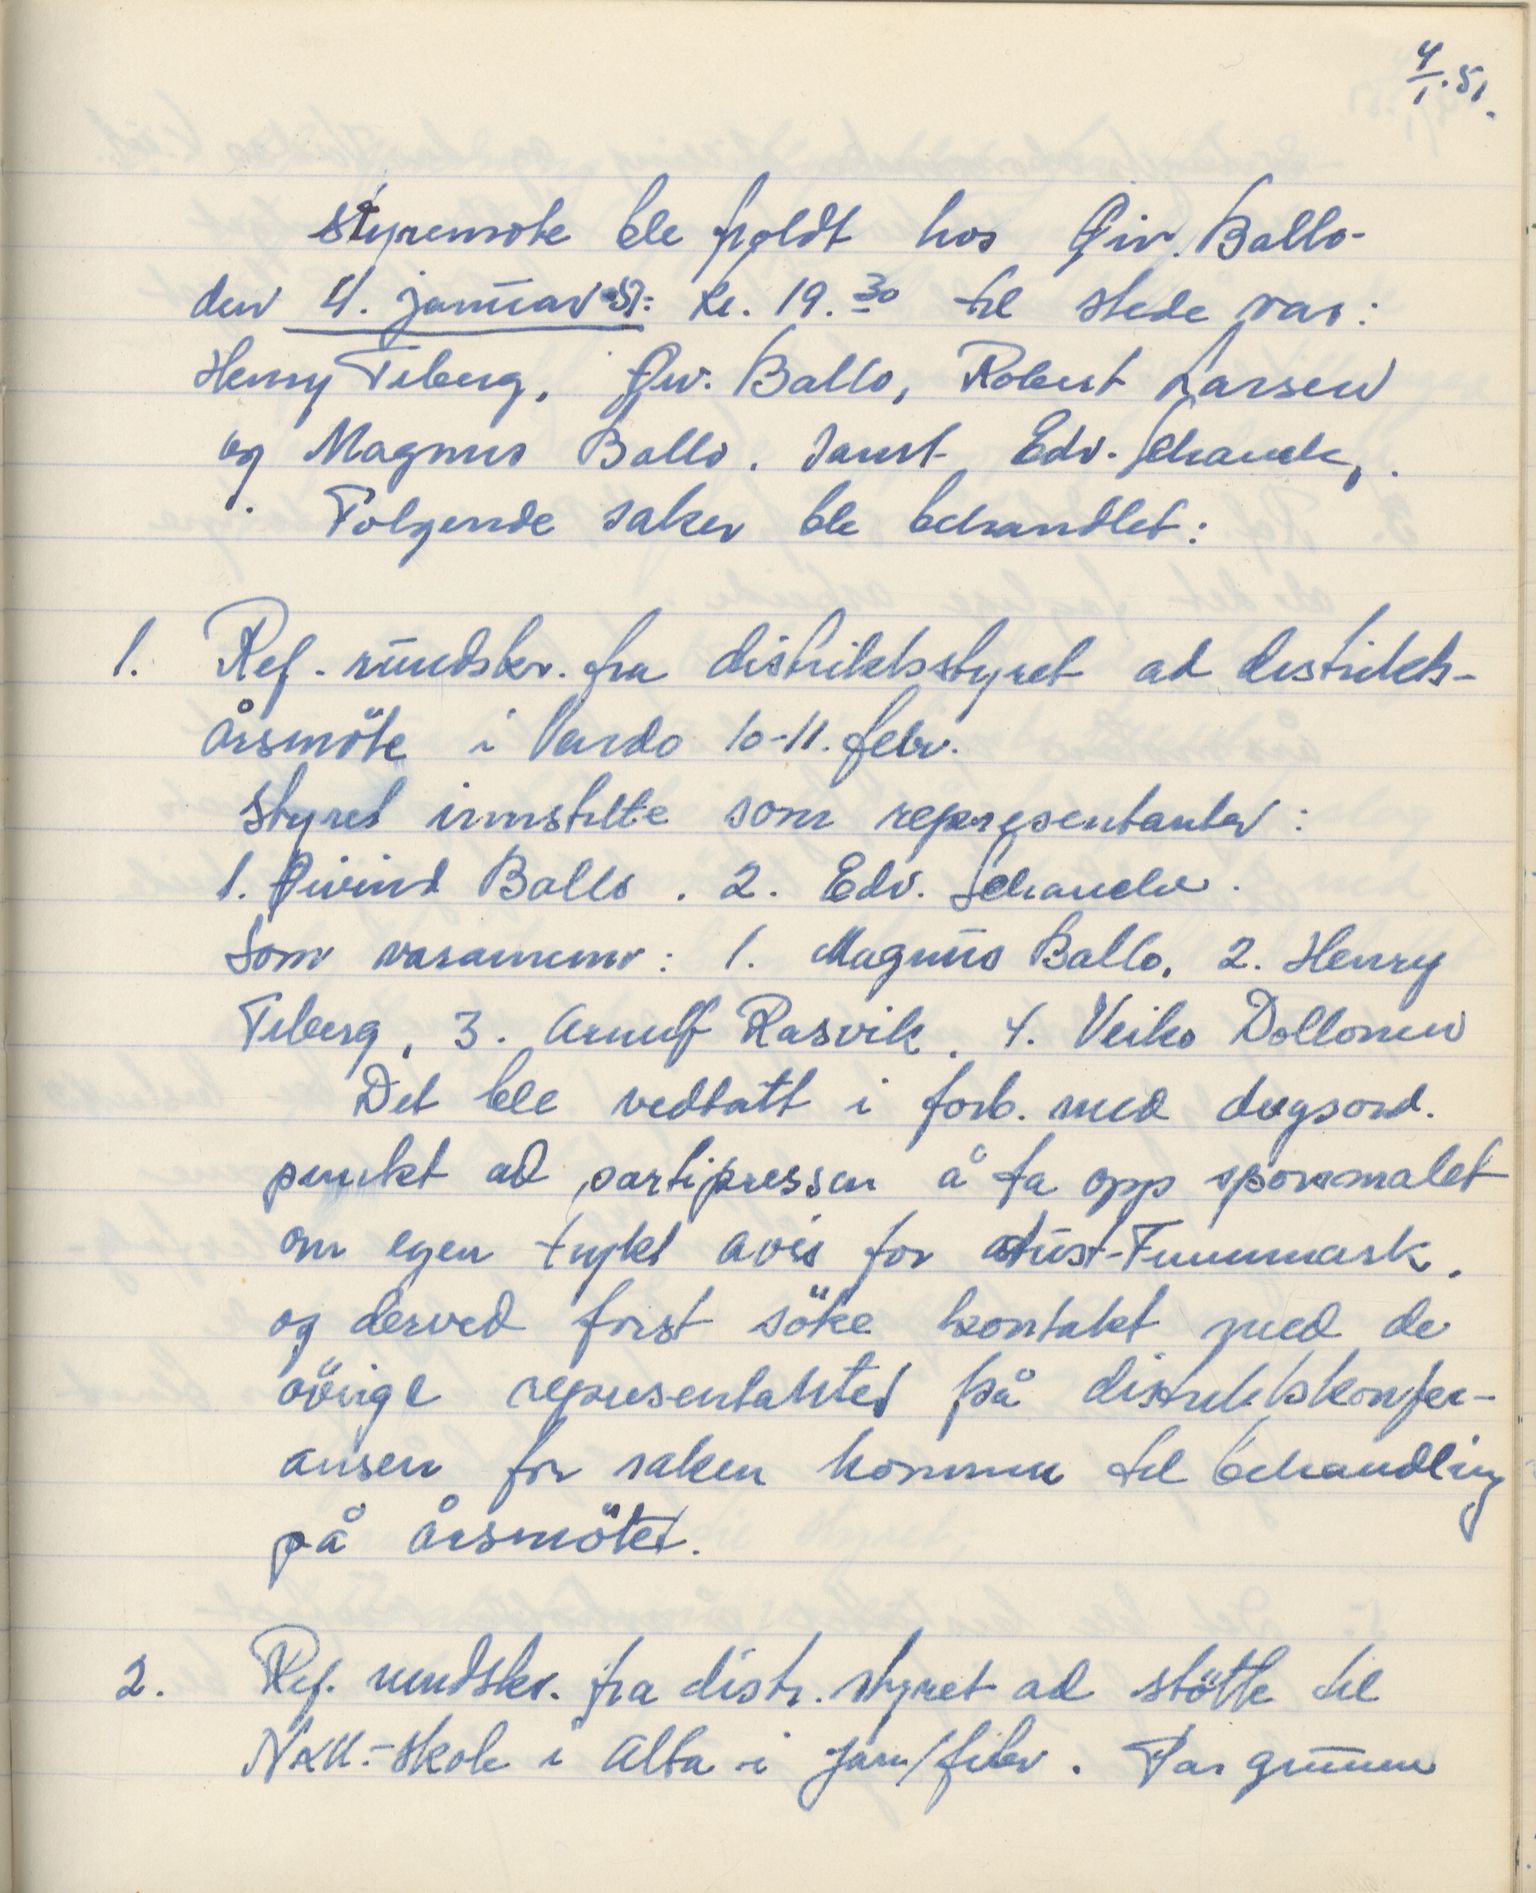 4/1. 51.
Styremøte ble holdt hos Øiv. Ballo
den 4. januar 51. kl. 19.30 til stede var:
Henry Fiberg, Øiv. Ballo, Robert Larsen
og Magnus Ballo. samt Edv. Schanche.
Følgende saker ble behandlet:
1. Ref. rundskr. fra distriktsstyret ad distrikts-
årsmöte i Vardø 10-11. febr.
Styret innstilte som representanter:
1. Øivind Ballo. 2. Edv. Schanche.
Som varamenn: 1. Magnus Ballo, 2. Henry
Fiberg, 3. Arnulf Rasvik, 4. Veiko Dollonen
Det ble vedtatt i forb. med dagsord.
punkt ad partipressen å ta opp sporsmalet
om egen trykt avis for Aust-Finnmark.
og derved først söke kontakt med de
övrige representanter på distriktskonfer-
ansen for saken kommer til behandling
på årsmötet.
2. Ref. rundskr. fra distr. styret ad stötte til
NKU.-skole i Alta i jan/febr. Par grunn